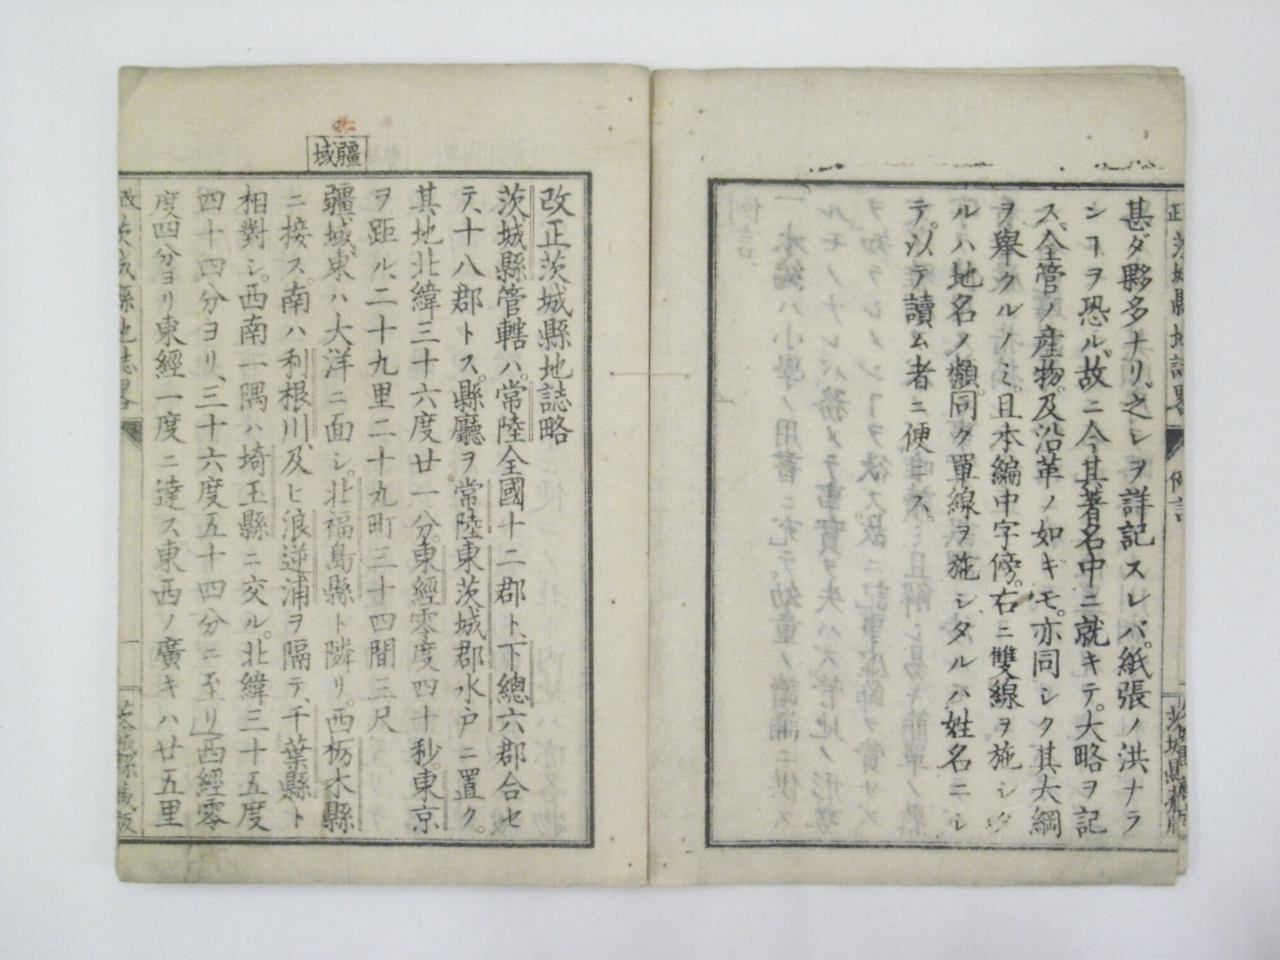 甚ダ夥多ナリ、之レヲ詳記スレバ、紙張ノ洪ナラ
ンヿヲ恐ル、故ニ今其著名中ニ就キテ。大略ヲ記
ス、全管ノ産物。及沿革ノ如キモ。亦同シク其大綱
ヲ舉クルノミ。且本編中字傍。右ニ雙線ヲ施シタ
ルハ地名ノ類。同ク單線ヲ施シタルハ姓名ニシ
テ。以テ讀ム者ニ便ニス。
疆域
改正茨城縣地誌略
茨城縣管轄ハ。常陸全國十二郡ト、下總六郡合セ
テ、十八郡トス。縣廳ヲ常陸東茨城郡水戸ニ置ク。
其地北緯三十六度廿一分。東經零度四十秒。東京
ヲ距ル、二十九里二十九町三十四間三尺
疆域、東ハ大洋ニ面シ。北福島縣ト隣リ。西栃木縣
ニ接ス。南ハ利根川、及ヒ浪逆浦ヲ隔テ、千葉縣ト
相對シ。西南一隅ハ埼玉縣ニ交ル。北緯三十五度
四十四分ヨリ、三十六度五十四分ニ至リ西經零
度四分ヨリ東經一度ニ達ス東西ノ廣キハ廿五里